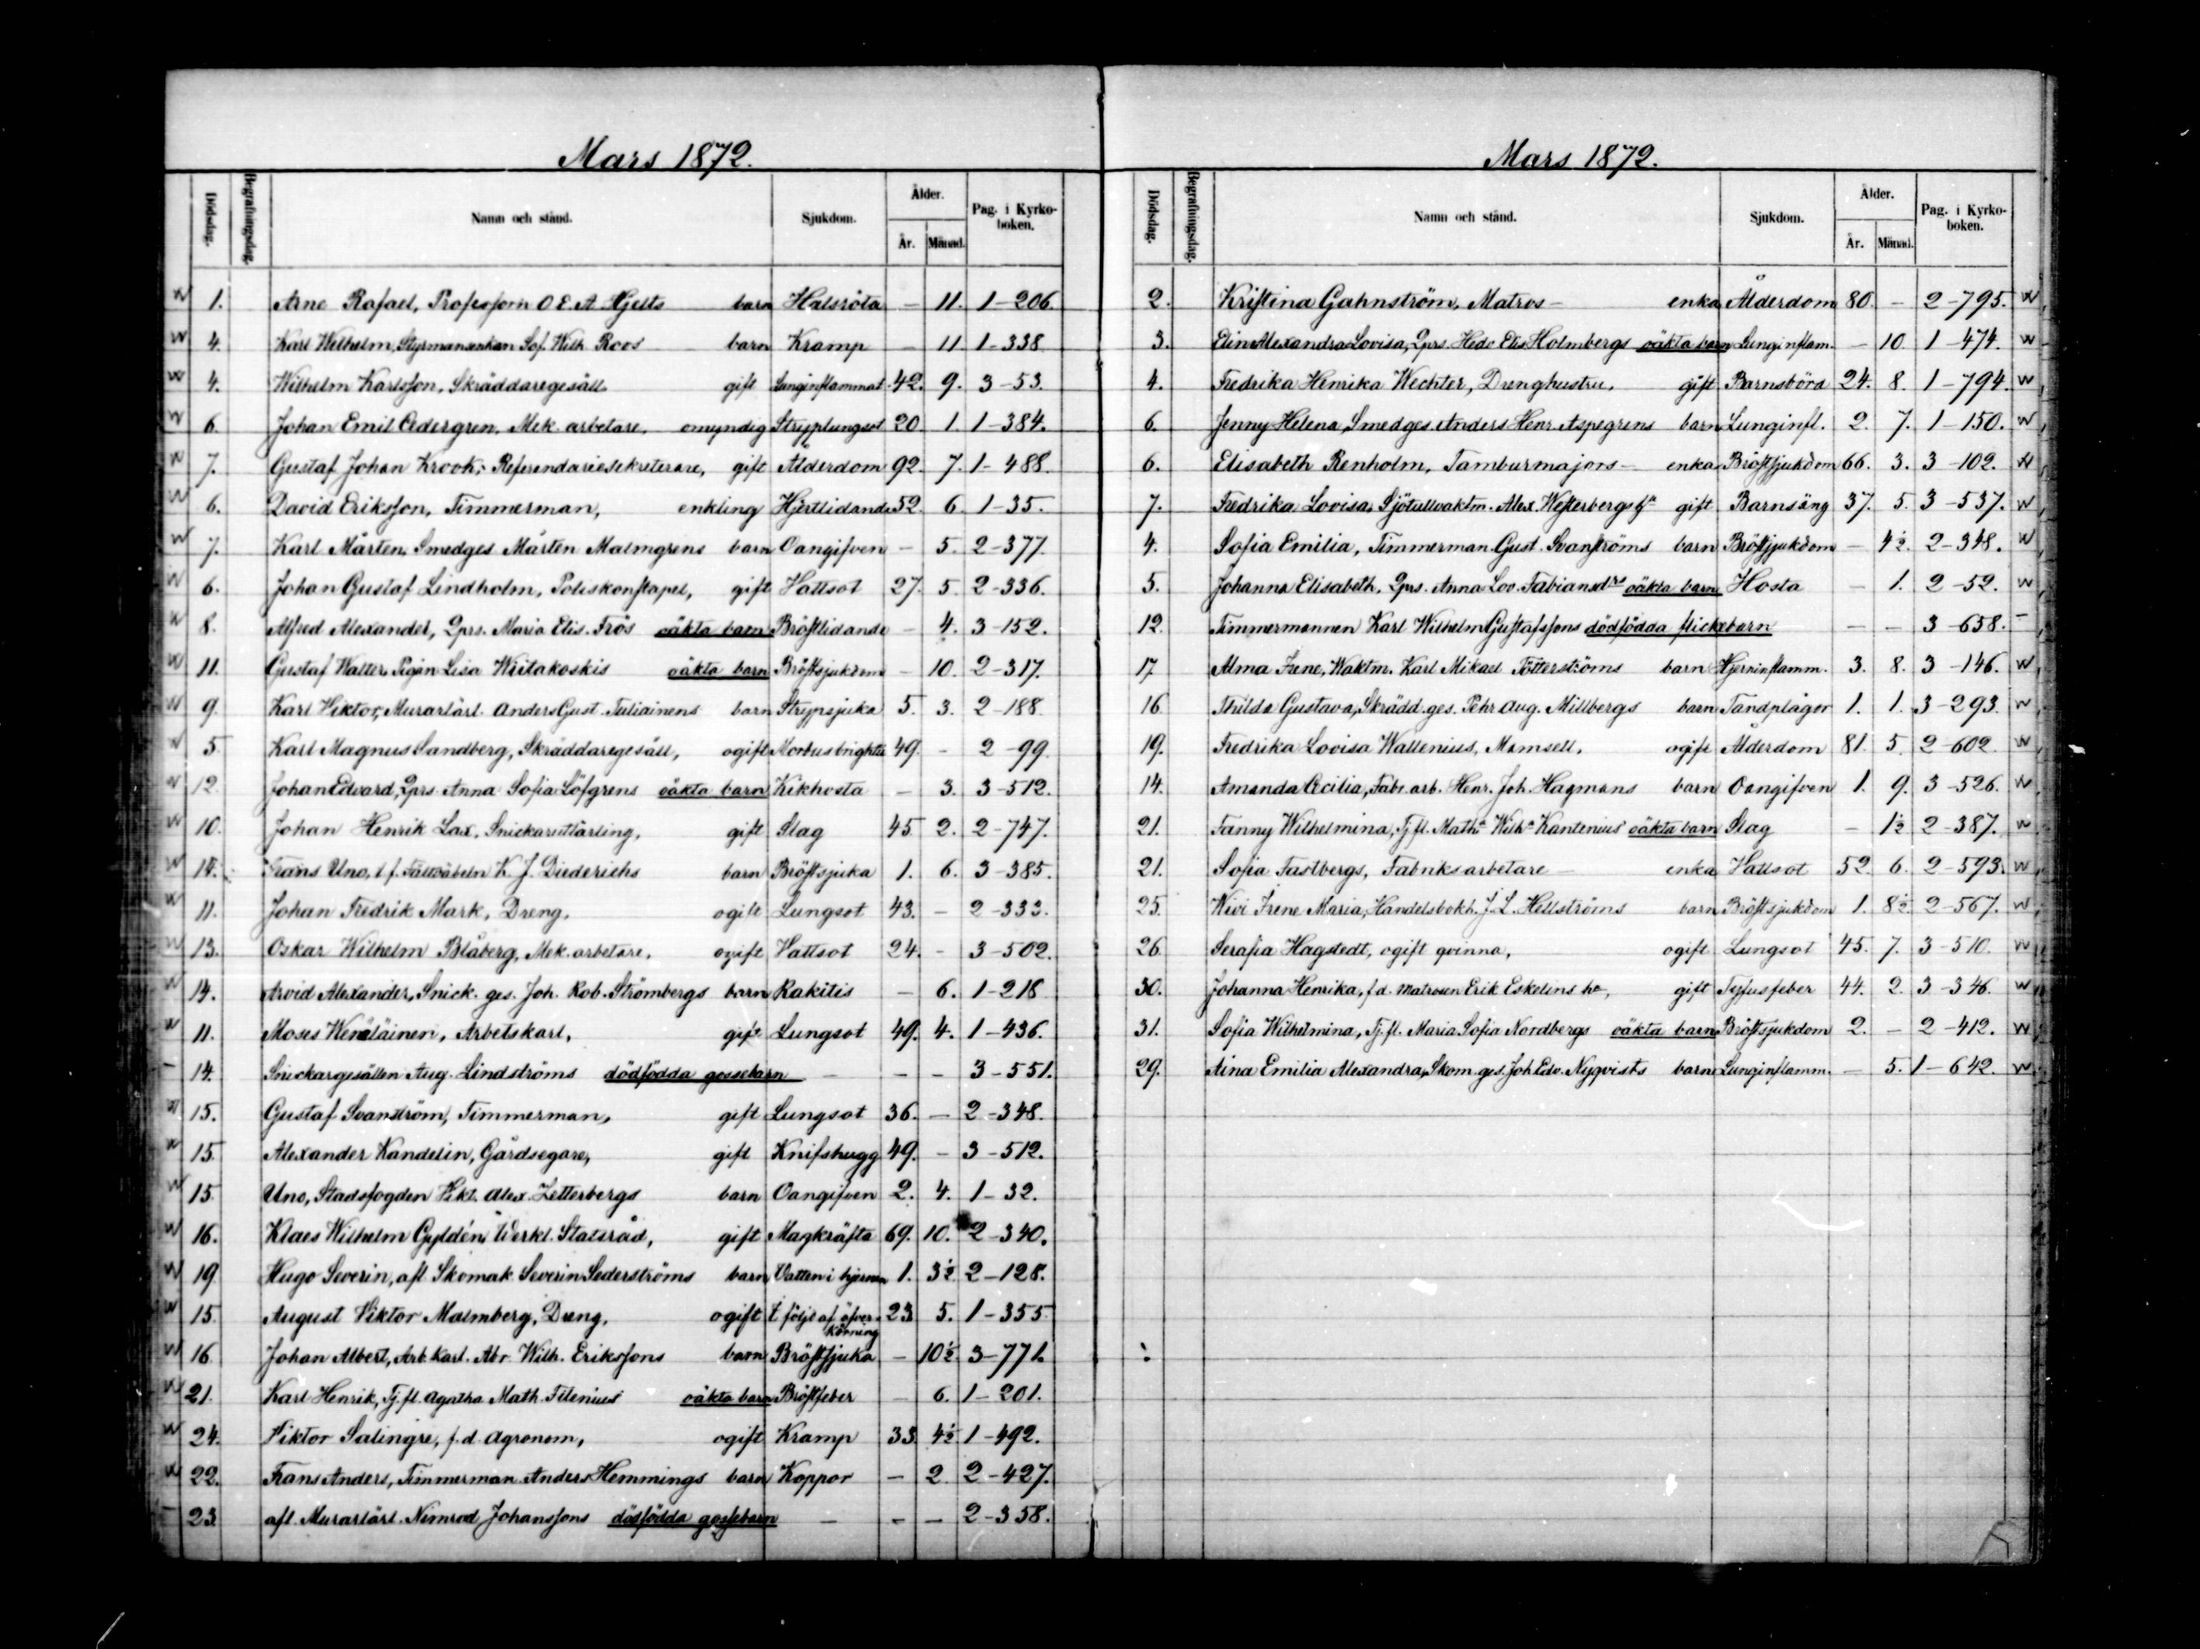 Mars 1872.
Dödsdag. Begrafningsdag. Namn och stånd. Sjukdom. Ålder. År. Månad. Pag. i Kyrkoboken.
1. Arne Rafael, Professorn O. E. A. Hjelts barn Halsröta — 11. 1-206.
4. Karl Wilhelm, Styrmansenkan Sof. Wilh. Roos barn Kramp — 11. 1-338
4. Wilhelm Karlsson, Skräddaregesäll gift Lunginflammat. 42. 9. 3-53.
6. Johan Emil Cedergren, Mek. arbetare, omyndig Stryplungsot 20 1. 1-384.
7. Gustaf Johan Krook, Referendariesekreterare, gift Ålderdom 92. 7. 1-488.
6. David Eriksson, Timmerman, enkling Hjertlidande 52. 6. 1-35.
7. Karl Mårten, Smedges Mårten Malmgrens barn Oangifven — 5. 2-377.
6. Johan Gustaf Lindholm, Poliskonstapel, gift Hattsot 27. 5. 2-336.
8. Alfred Alexander, Qprs. Maria Elis. Frös oäkta barn Bröstlidande — 4. 3-152.
11. Gustaf Walter, Pigan Lisa Wiitakoskis oäkta barn Bröstsjukdom — 10. 2-317.
9. Karl Hiktor, Murarlärl. Anders Gust. Tuliainens barn Strypsjuka 5. 3. 2-188
5. Karl Magnus Sandberg, Skräddaregesäll, ogift Morbus brightii 49. - 2-99.
12. Johan Edvard, Qprs. Anna Sofia Löfgrens oäkta barn Kikhosta — 3. 3-512.
10. Johan Henrik Lax, Snickareutlärling, gift Slag 45 2. 2-747.
14. Frans Uno, t. f. Fältväbeln K. J. Diederichs barn Bröstsjuka 1. 6. 3-385.
11. Johan Fredrik Mark, Dreng, ogift Lungsot 43. - 2-333.
13. Oskar Wilhelm Blåberg, Mek. arbetare, ogift Hattsot 24. - 3-502.
14. Arvid Alexander, Snick. ges. Joh. Rob. Strömbergs barn Rakitis — 6. 1-218
11. Moses Wenäläinen, Arbetskarl, gift Lungsot 49. 4. 1-436.
14. Snickargesällen Aug. Lindströms dödfödda gossebarn — — — 3-551.
15. Gustaf Svanström, Timmerman, gift Lungsot 36. — 2-348.
15. Alexander Kandelin, Gårdsegare, gift Knifshugg 49. - 3-512.
15. Uno, Stadsfogden Vikt. Alex. Zetterbergs barn Oangifven 2. 4. 1-32.
16. Klaes Wilhelm Gyldén, Verkl. Statsråd, gift Magkräfta 69. 10. 2-340.
19. Hugo Severin, afl. Skomak. Severin Sederströms barn Vatten i hjernan 1. 3½ 2-128.
15. August Viktor Malmberg, Dreng, ogift t. följd af öfverkörning 23. 5. 1-355
16. Johan Albert, Arb. karl. Abr. Wilh. Erikssons barn Bröstsjuka — 10½ 3-771.
21. Karl Henrik, Tj. fl. Agatha Math. Filenius oäkta barn Bröstfeber — 6. 1-201.
24. Viktor Salingre, f. d. Agronom, ogift Kramp 33. 4½ 1-492.
22. Frans Anders, Timmerman Anders Hemmings barn Koppor — 2 2-427.
23. afl. Murarlärl. Nimrod Johanssons dödfödda gossebarn — — — 2-358.
Mars 1872.
Dödsdag. Begrafningsdag. Namn och stånd. Sjukdom. Ålder. År. Månad. Pag. i Kyrkoboken.
2. Kristina Grahnström, Matros- enka Ålderdom 80. - 2-795.
3. Elin Alexandra Lovisa, Qprs. Hedv. Elis Holmbergs oäkta barn Lunginflam. — 10. 1-474.
4. Fredrika Henrika Wechter, Drenghustru, gift Barnsbörd 24. 8. 1-794.
6. Jenny Helena, Smedges. Anders Henr. Aspegrens barn Lunginfl. 2. 7. 1-150.
6. Elisabeth Renholm, Tamburmajors- enka Bröstsjukdom 66. 3. 3-102.
7. Fredrika Lovisa, Sjötullvaktm. Alex. Westerbergs h:u gift Barnsäng 37. 5. 3-537.
4. Sofia Emilia, Timmerman Gust. Svanströms barn Bröstsjukdom — 4½. 2-348.
5. Johanna Elisabeth, Qprs. Anna Lov. Fabiansdrs oäkta barn Hosta — 1. 2-52.
12. Timmermannen Karl Wilhelm Gustafssons dödfödda flickebarn — — 3-658.
17. Alma Irene, Waktm. Karl Mikael Pötterströms barn Hjerninflamm. 3. 8. 3-146.
16. Thilda Gustava, Skrädd. ges. Pehr Aug. Millbergs barn Tandplågor 1. 1. 3-293.
19. Fredrika Lovisa Wallenius, Mamsell, ogift Ålderdom 81. 5. 2-602.
14. Amanda Cecilia, Fabr. arb. Henr. Joh. Hagmans barn Oangifven 1. 9. 3-526.
21. Fanny Wilhelmina, Tj. fl. Matha Wilha Kantenius' oäkta barn Slag — 1½ 2-387.
21. Sofia Fastbergs, Fabriksarbetare- enka Hattsot 52. 6. 2-593.
25. Wivi Irene Maria, Handelsbokh. J. L. Hellströms barn Bröstsjukdom 1. 8½. 2-567.
26. Serafia Hagstedt, ogift qvinna, ogift Lungsot 45. 7. 3-510.
30. Johanna Henrika, f. d. Matrosen Erik Eskelins hu, gift Tyfusfeber 44. 2. 3-346.
31. Sofia Wilhelmina, Tj. fl. Maria Sofia Nordbergs oäkta barn Bröstsjukdom 2. - 2-412.
29. Aina Emilia Alexandra, Skom. ges. Joh. Edv. Nyqvists barn Lunginflamm. — 5. 1-642.